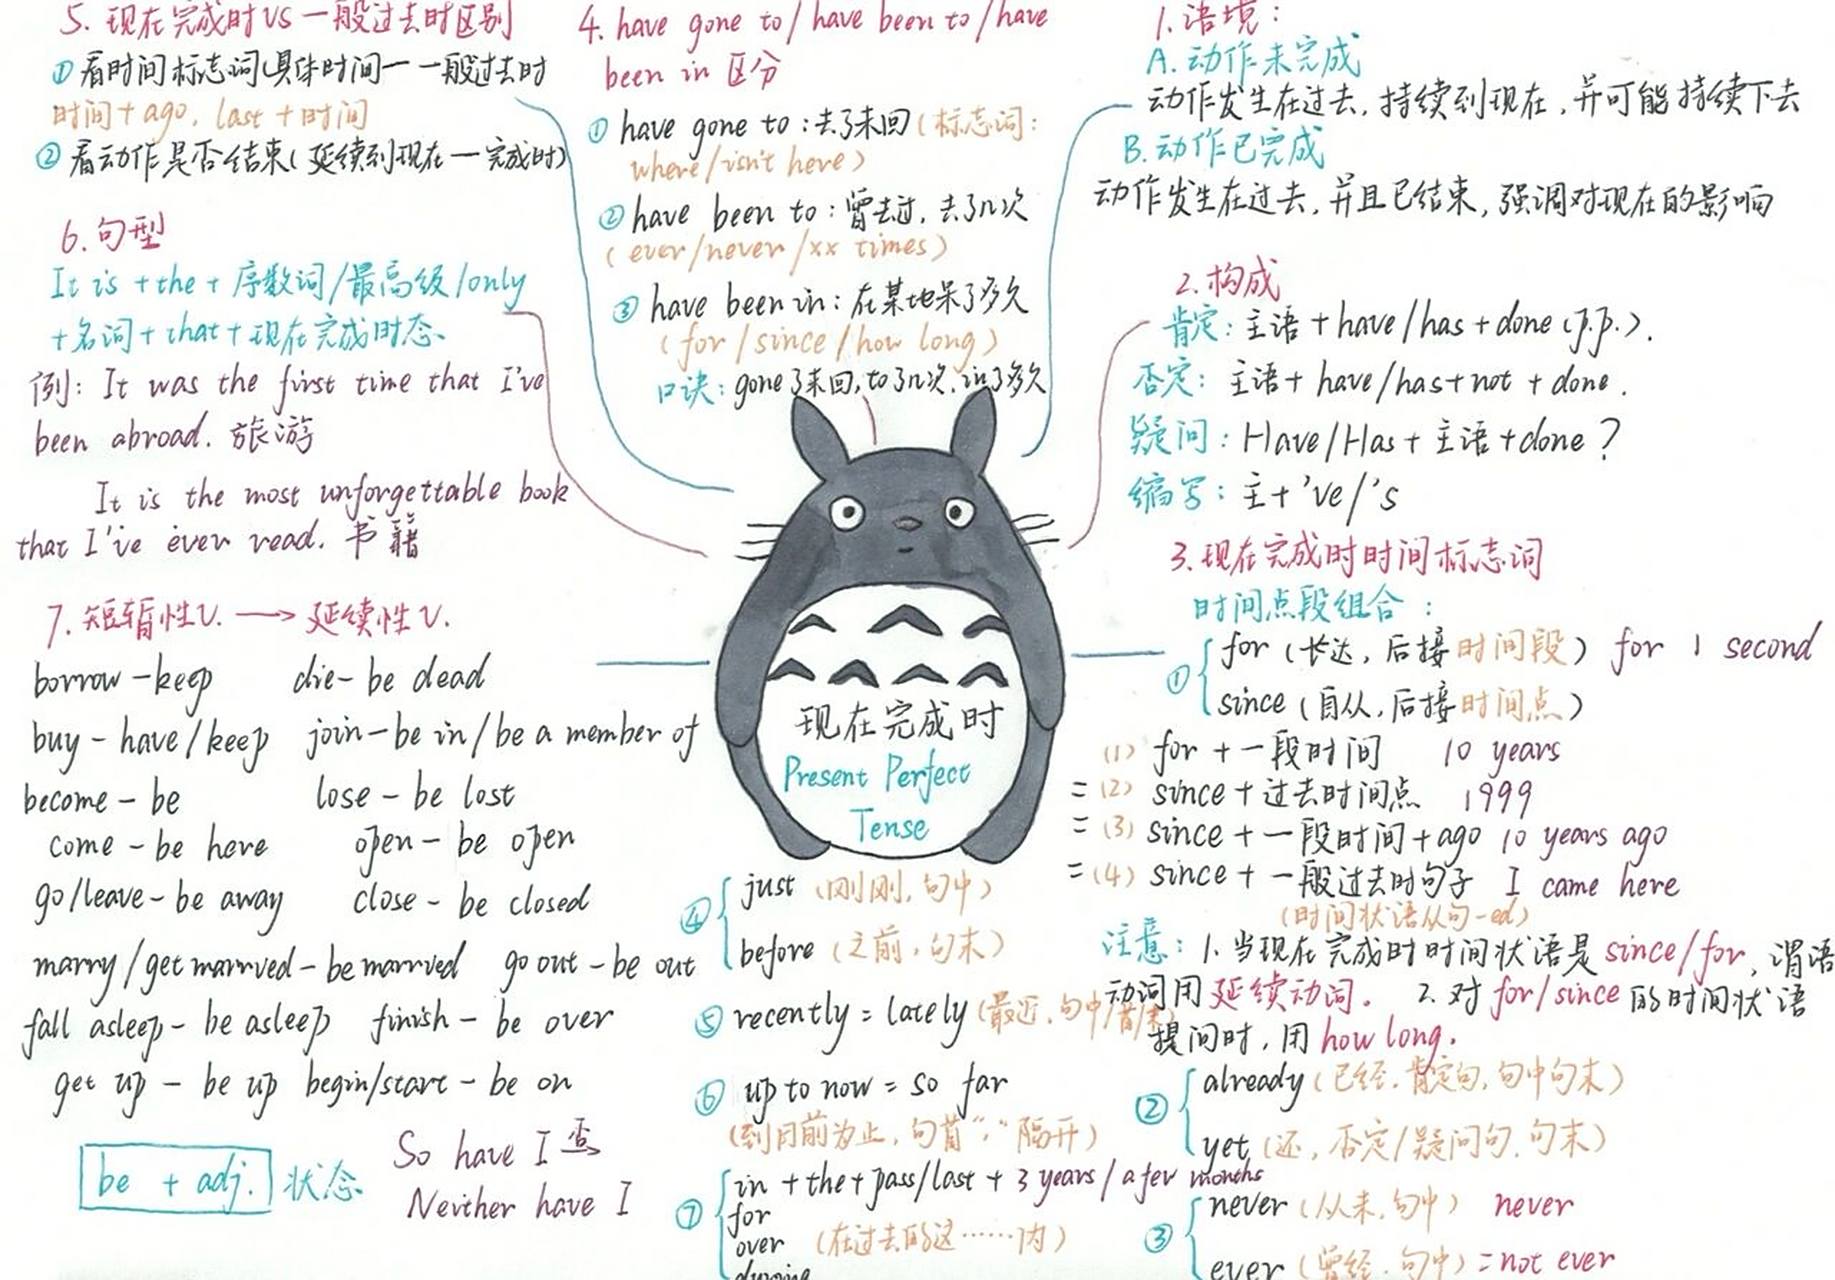 1.语境:
A.动作未完成
动作发生在过去,持续到现在,并可能持续下去
B.动作已完成
动作发生在过去,并且已结束,强调对现在的影响
2.构成
肯定:主语+have/has+done(p.p.).
否定:主语+have/has+not+done.
疑问:Have/Has+主语+done?
缩写:主+'ve/'s
3.现在完成时时间标志词
时间点段组合:
① for(长达,后接时间段) for 1 second
since(自从,后接时间点)
(1) for+一段时间 10 years
=(2) since+过去时间点 1999
=(3) since+一段时间+ago 10 years ago
=(4) since+一般过去时句子 I came here
(时间状语从句-ed)
注意:1.当现在完成时时间状语是since/for,谓语
动词用延续动词。 2.对for/since的时间状语
提问时,用how long.
② already(已经.肯定句,句中句末)
yet(还,否定/疑问句.句末)
③ never(从未.句中) never
ever(曾经.句中)=not ever
④ just(刚刚,句中)
before(之前,句末)
⑤ recently=lately(最近.句中/
⑥ up to now=so far
(到目前为止,句首","隔开)
⑦ in+the+pass/last+3 years/a few months
for
over (在过去的这……内)
during
4. have gone to/have been to/have
been in 区分
① have gone to:去了未回(标志词:
where/isn't here)
② have been to:曾去过,去了几次
(ever/never/xx times)
③ have been in:在某地呆了多久
(for/since/how long)
口诀:gone了未回,to了几次,in了多久
5.现在完成时VS一般过去时区别
①看时间标志词(具体时间一一般过去时
时间+ago, last+时间
②看动作是否结束(延续到现在一完成时)
6.句型
It is+the+序数词/最高级/only
+名词+that+现在完成时态、
例:It was the first time that I've
been abroad. 旅游
It is the most unforgettable book
that I've ever read. 书籍
7.短暂性v.→延续性v.
borrow-keep die-be dead
buy-have/keep join-be in/be a member of
become-be lose-be lost
come-be here open-be open
go/leave-be away close-be closed
marry/get married-be married go out-be out
fall asleep-be asleep finish-be over
get up-be up begin/start-be on
be + adj. 状态
So have I 否
Neither have I
现在完成时
Present Perfect
Tense